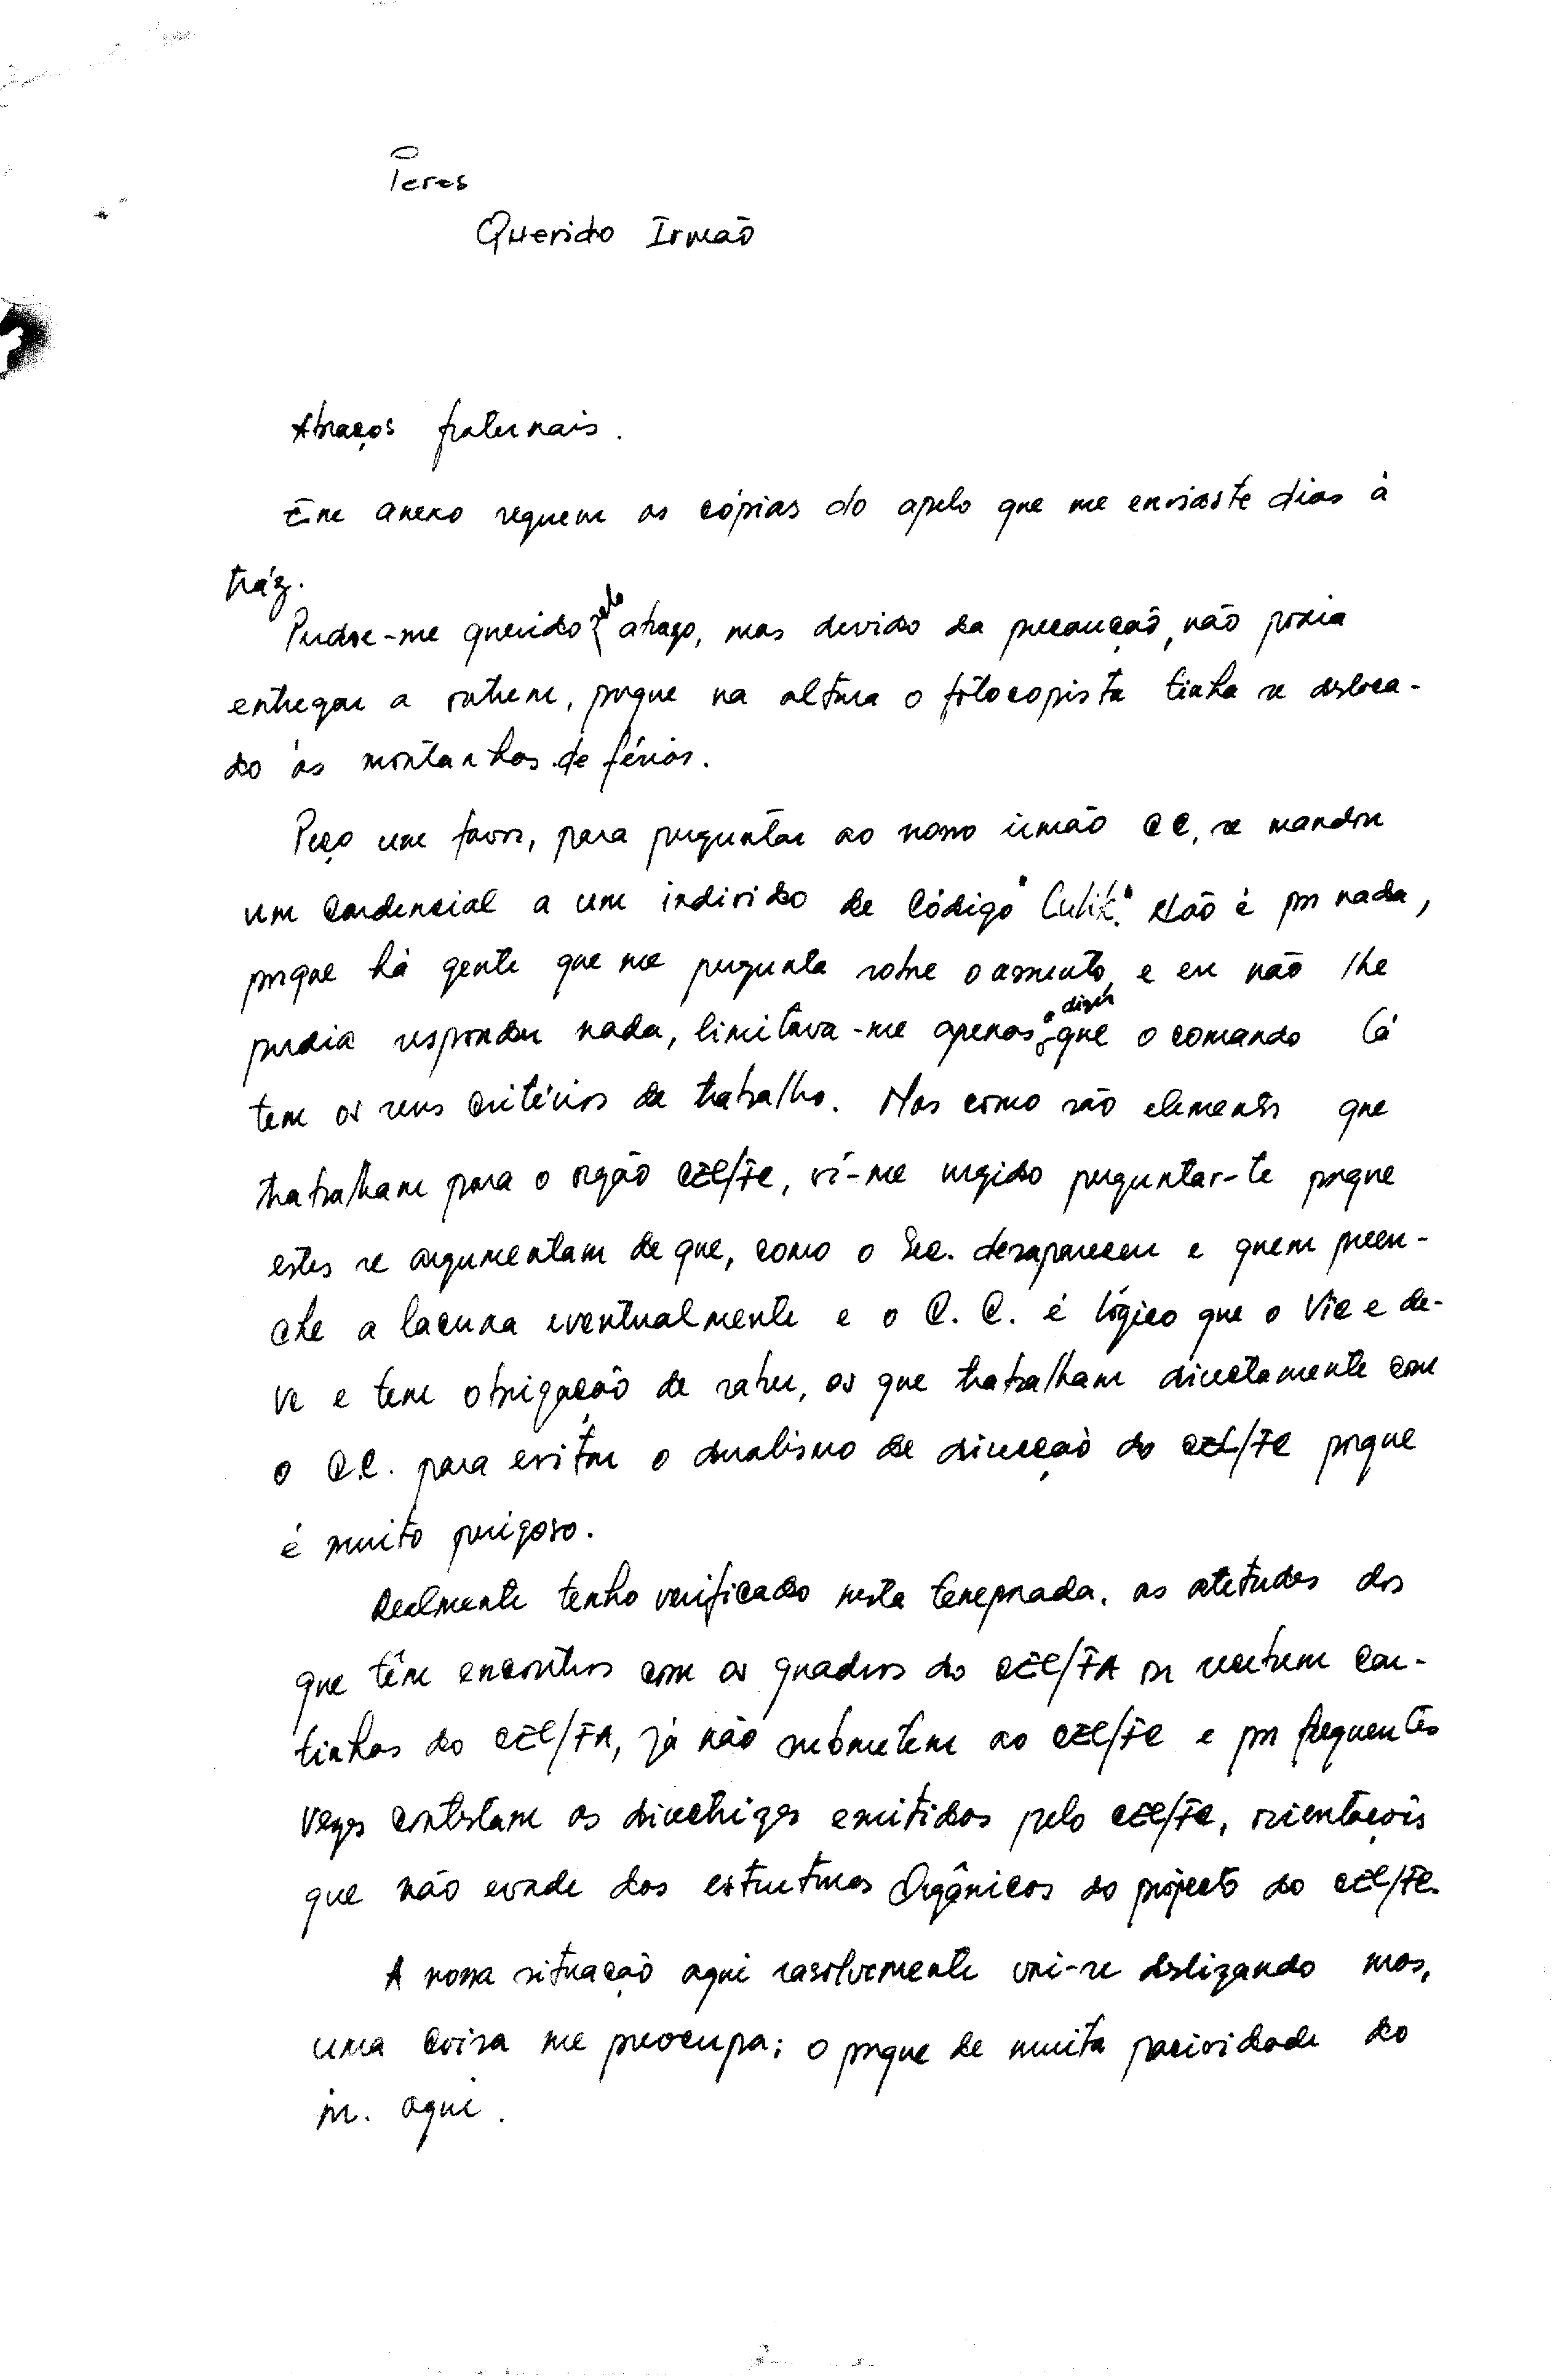 Peres
Querido Irmão
Abraços fraternais.
Em anexo seguem as cópias do apelo que me enviaste dias à
tráz.
Perdoe-me querido pelo atrazo, mas devido da precaução, não podia
entregar a outrem, porque na altura o fotocopista tinha se desloca-
do às montanhas de férias.
Peço um favor, para perguntar ao nosso irmão CC, se mandou
um credencial a um individo de Código "Culik". Não é por nada,
porque há gente que me pergunta sobre o assunto, e eu não lhe
podia responder nada, limitava-me apenas a dizer que o comando lá
tem os seus critérios de trabalho. Mas como são elementos que
trabalham para o orgão CEL/FC, vi-me urgido perguntar-te porque
estes se argumentam de que, como o Sec. desapareceu e quem preen-
che a lacuna eventualmente e o C. C. é lógico que o Vice de-
ve e tem obrigação de saber, os que trabalham directamente com
o C.C. para evitar o dualismo de direcção do CEL/FC porque
é muito perigoso.
Realmente tenho verificado nesta temporada, as atetudes dos
que têm encontros com os quadros do CEL/FA ou recebem car-
tinhas do CEL/FA, já não submetem ao CEL/FC e por frequentes
vezes contestam as directrizes emitidas pelo CEL/FC, orientações
que não evade das estruturas Orgânicas do projecto do CEL/FC.
A nossa situação aqui vai-se deslizando mas,
uma coisa me preocupa; o porque de muita pacividade do
in. aqui.